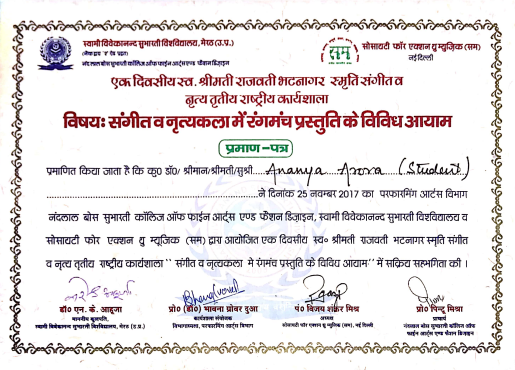 स्वामी विवेकानन्द सुभारती विश्वविद्यालय, मेरठ (उ.प्र.)
नंदलाल बोस सुभारती कॉलिज ऑफ फाईन आर्ट्स एण्ड फैशन डिज़ाइन
सम
सोसायटी फॉर एक्शन थ्रु म्यूज़िक (सम)
नई दिल्ली
एक दिवसीय स्व. श्रीमती राजवती भटनागर स्मृति संगीत व
नृत्य तृतीय राष्ट्रीय कार्यशाला
विषयः संगीत व नृत्यकला में रंगमंच प्रस्तुति के विविध आयाम
प्रमाण-पत्र
प्रमाणित किया जाता है कि कु0 डॉ0/ श्रीमान/श्रीमती/सुश्री Ananya Arora (Student)
ने दिनांक 25 नवम्बर 2017 का परफारमिंग आर्टस विभाग
नंदलाल बोस सुभारती कॉलिज ऑफ फाईन आर्ट्स एण्ड फैशन डिज़ाइन, स्वामी विवेकानन्द सुभारती विश्वविद्यालय व
सोसायटी फोर एक्शन थ्रु म्यूजिक (सम) द्वारा आयोजित एक दिवसीय स्व० श्रीमती राजवती भटनागर स्मृति संगीत
व नृत्य तृतीय राष्ट्रीय कार्यशाला `` संगीत व नृत्यकला में रंगमंच प्रस्तुति के विविध आयाम'' में सक्रिय सहभगिता की ।
डॉ० एन. के. आहूजा
माननीय कुलपति,
स्वामी विवेकानन्द सुभारती विश्वविद्यालय, मेरठ (उ.प्र.)
प्रो० (डॉ०) भावना ग्रोवर दुआ
कार्यशाला संयोजक
विभागाध्यक्ष, परफारमिंग आर्ट्स विभाग
पं० विजय शंकर मिश्र
अध्यक्ष
सोसायटी फॉर एक्शन थ्रु म्यूजिक (सम), नई दिल्ली
प्रो० पिन्टु मिश्रा
प्राचार्य
नंदलाल बोस सुभारती कॉलिज ऑफ
फाईन आर्ट्स एण्ड फैशन डिज़ाइन